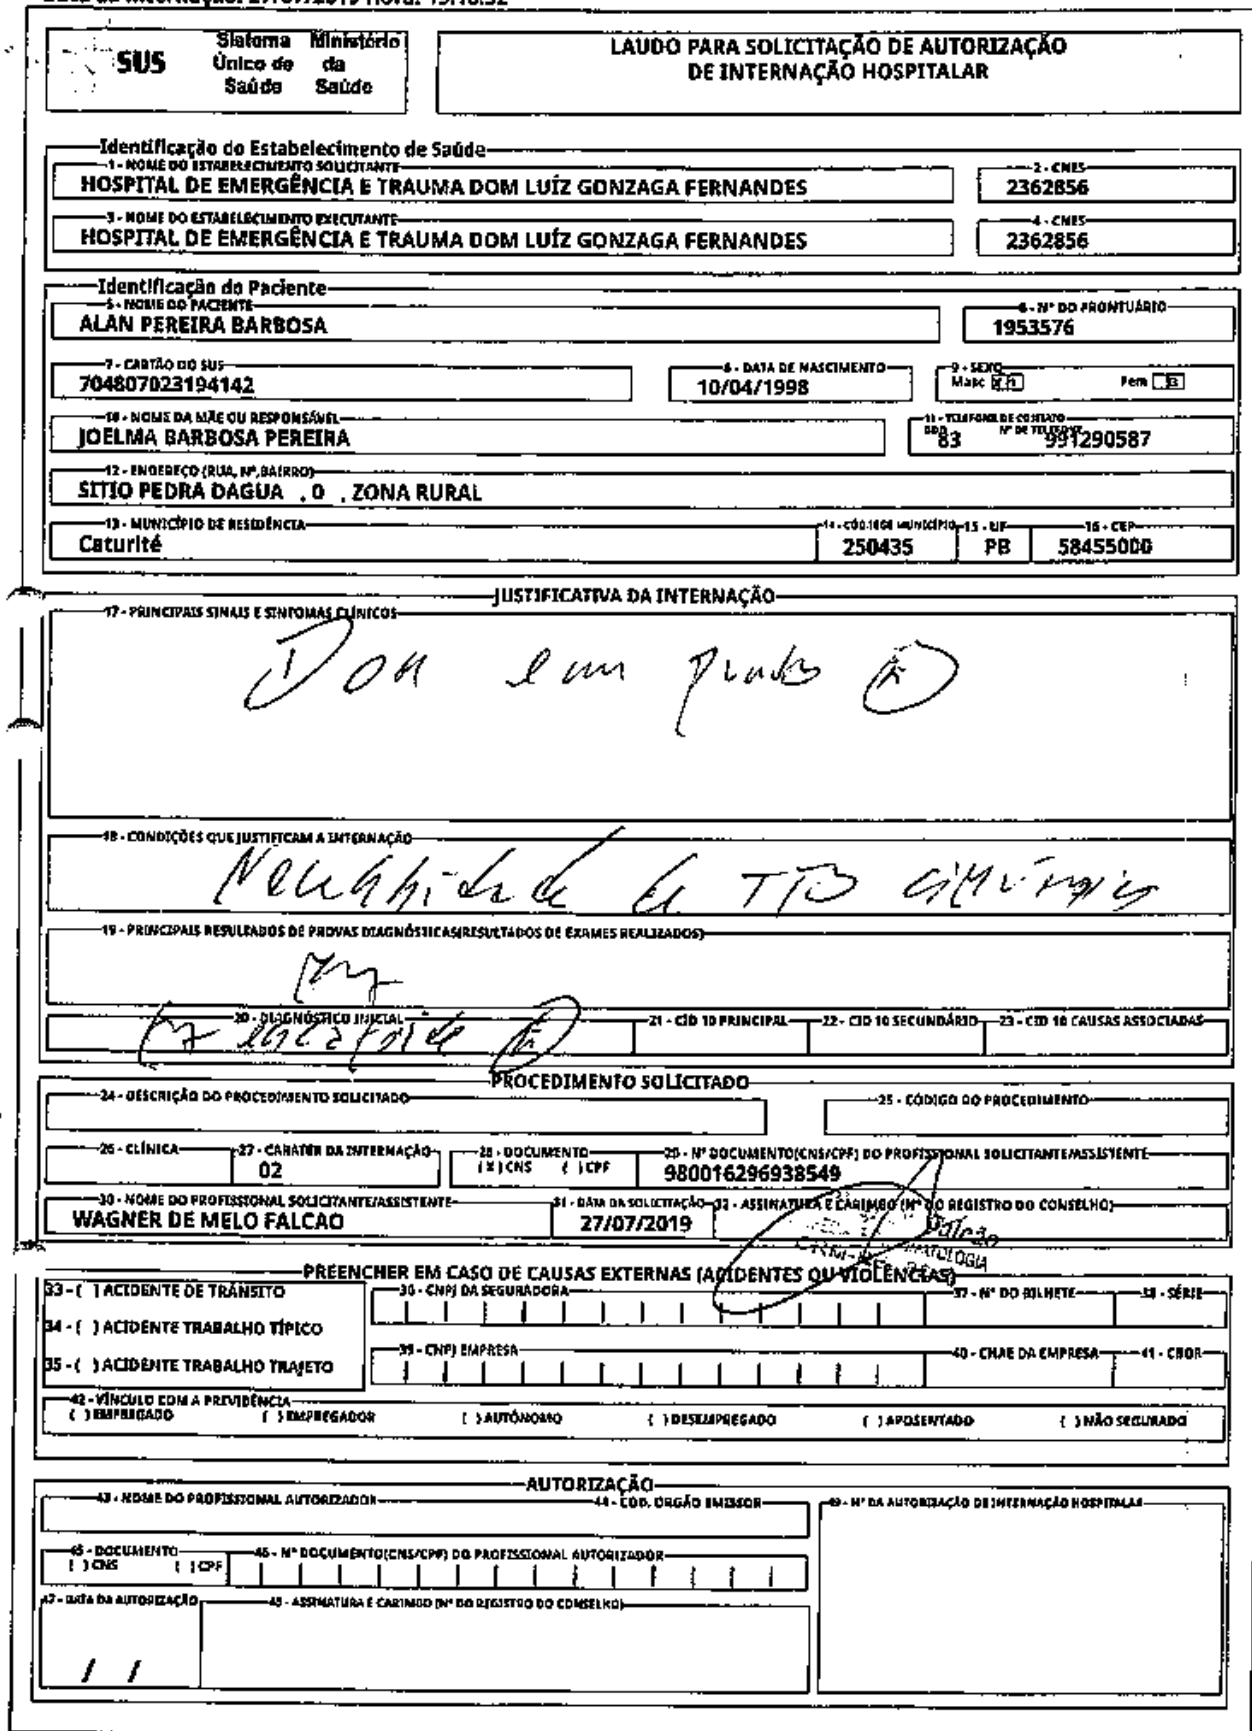 SUS
Sistema Ministério
Único de da
Saúde Saúde
LAUDO PARA SOLICITAÇÃO DE AUTORIZAÇÃO
DE INTERNAÇÃO HOSPITALAR
Identificação do Estabelecimento de Saúde
1 - NOME DO ESTABELECIMENTO SOLICITANTE 2 - CNES
HOSPITAL DE EMERGÊNCIA E TRAUMA DOM LUÍZ GONZAGA FERNANDES 2362856
3 - NOME DO ESTABELECIMENTO EXECUTANTE 4 - CNES
HOSPITAL DE EMERGÊNCIA E TRAUMA DOM LUÍZ GONZAGA FERNANDES 2362856
Identificação do Paciente
5 - NOME DO PACIENTE 6 - Nº DO PRONTUÁRIO
ALAN PEREIRA BARBOSA 1953576
7 - CARTÃO DO SUS 8 - DATA DE NASCIMENTO 9 - SEXO
704807023194142 10/04/1998 Masc Fem
10 - NOME DA MÃE OU RESPONSÁVEL 11 - TELEFONE DE CONTATO
DDD Nº DE TELEFONE
JOELMA BARBOSA PEREIRA 83 991290587
12 - ENDEREÇO (RUA, Nº, BAIRRO)
SITIO PEDRA DAGUA , 0 , ZONA RURAL
13 - MUNICÍPIO DE RESIDÊNCIA 14 - CÓD. IBGE MUNICÍPIO 15 - UF 16 - CEP
Caturité 250435 PB 58455000
JUSTIFICATIVA DA INTERNAÇÃO
17 - PRINCIPAIS SINAIS E SINTOMAS CLÍNICOS
Dor em punho
18 - CONDIÇÕES QUE JUSTIFICAM A INTERNAÇÃO
Necessidade de TTO cirúrgico
19 - PRINCIPAIS RESULTADOS DE PROVAS DIAGNÓSTICAS(RESULTADOS DE EXAMES REALIZADOS)
20 - DIAGNÓSTICO INICIAL 21 - CID 10 PRINCIPAL 22 - CID 10 SECUNDÁRIO 23 - CID 10 CAUSAS ASSOCIADAS
escafoide
PROCEDIMENTO SOLICITADO
24 - DESCRIÇÃO DO PROCEDIMENTO SOLICITADO 25 - CÓDIGO DO PROCEDIMENTO
26 - CLÍNICA 27 - CARATER DA INTERNAÇÃO 28 - DOCUMENTO 29 - Nº DOCUMENTO(CNS/CPF) DO PROFISSIONAL SOLICITANTE/ASSISTENTE
02 (X) CNS ( ) CPF 980016296938549
30 - NOME DO PROFISSIONAL SOLICITANTE/ASSISTENTE 31 - DATA DA SOLICITAÇÃO 32 - ASSINATURA E CARIMBO (Nº DO REGISTRO DO CONSELHO)
WAGNER DE MELO FALCAO 27/07/2019
Falcão
PREENCHER EM CASO DE CAUSAS EXTERNAS (ACIDENTES OU VIOLÊNCIAS)
33 - ( ) ACIDENTE DE TRÂNSITO 36 - CNPJ DA SEGURADORA 37 - Nº DO BILHETE 38 - SÉRIE
34 - ( ) ACIDENTE TRABALHO TÍPICO
35 - ( ) ACIDENTE TRABALHO TRAJETO 39 - CNPJ EMPRESA 40 - CNAE DA EMPRESA 41 - CBOR
42 - VÍNCULO COM A PREVIDÊNCIA
( ) EMPREGADO ( ) EMPREGADOR ( ) AUTÔNOMO ( ) DESEMPREGADO ( ) APOSENTADO ( ) NÃO SEGURADO
AUTORIZAÇÃO
43 - NOME DO PROFISSIONAL AUTORIZADOR 44 - COD. ORGÃO EMISSOR 49 - Nº DA AUTORIZAÇÃO DE INTERNAÇÃO HOSPITALAR
45 - DOCUMENTO 46 - Nº DOCUMENTO(CNS/CPF) DO PROFISSIONAL AUTORIZADOR
( ) CNS ( ) CPF
47 - DATA DA AUTORIZAÇÃO 48 - ASSINATURA E CARIMBO (Nº DO REGISTRO DO CONSELHO)
/ /